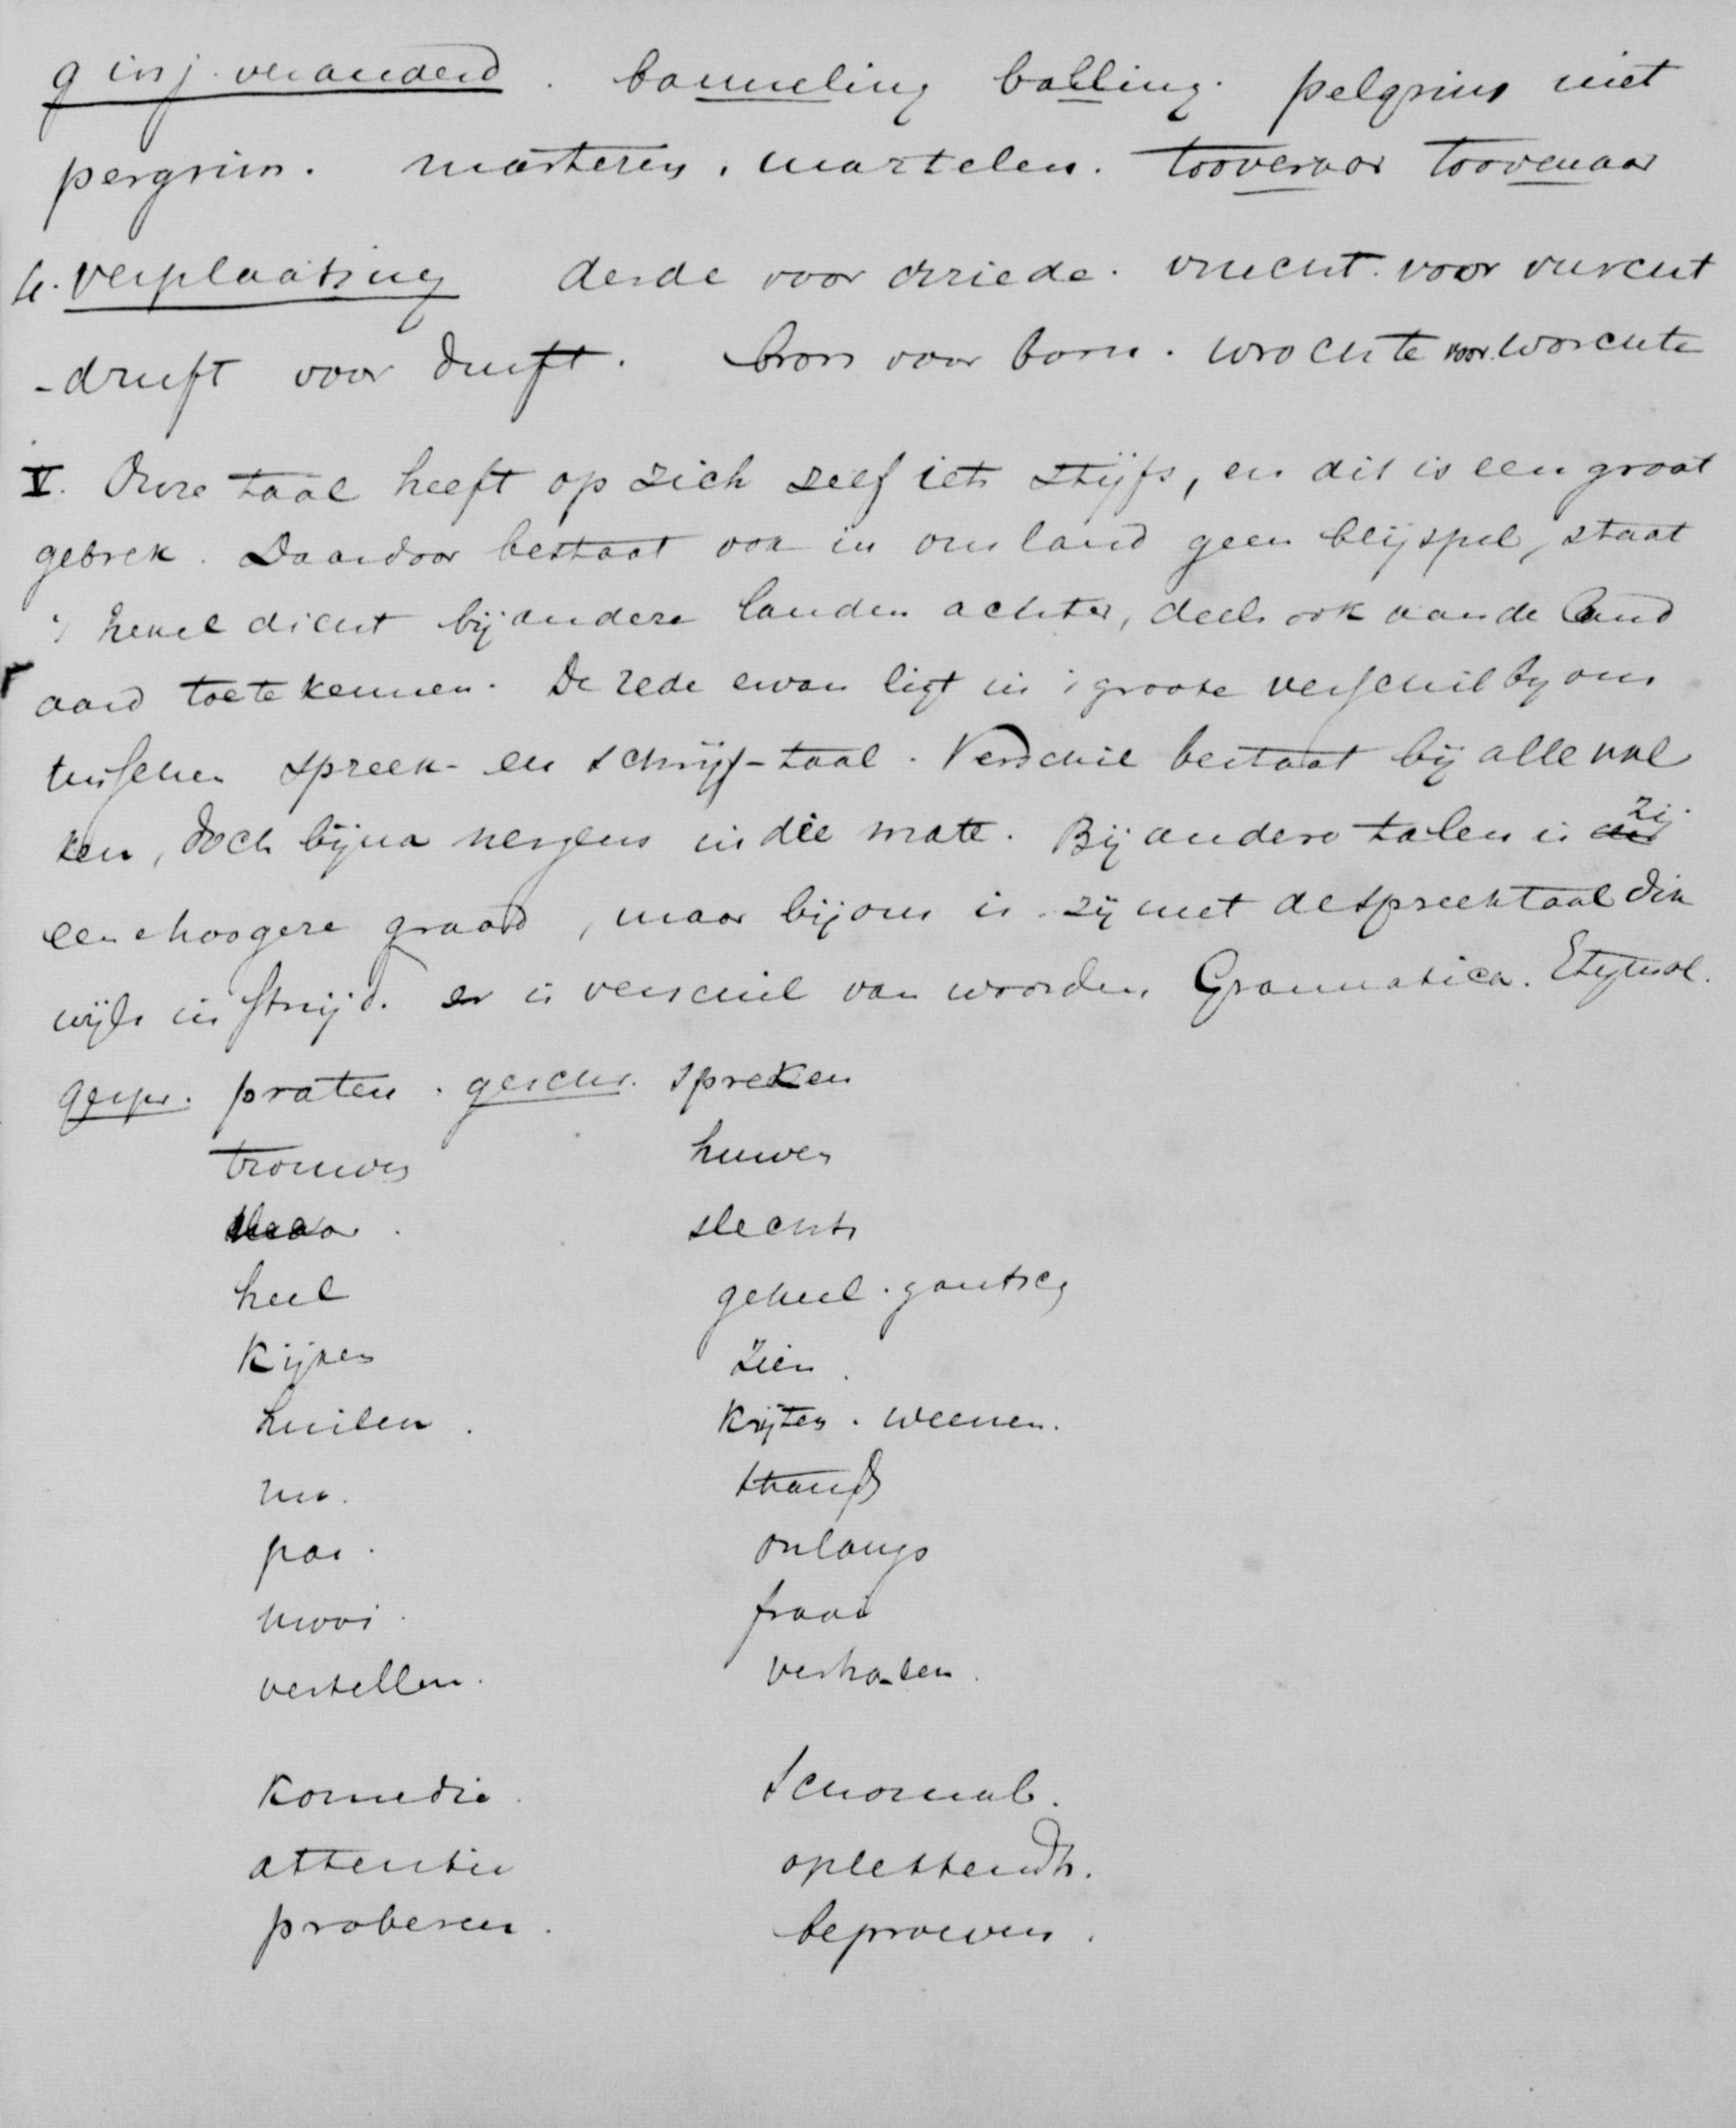 g in j. veranderd. banneling balling. pelgrim niet
pergrim. marteren, martelen. tooveraar toovenaar
h. verplaatsing derde voor driede. vrucht voor vurcht
-druft voor durft. bron voor born. wrochte voor worchte
V. Onze taal heeft op zich zelf iets stijfs, en dit is een groot
gebrek. Daardoor bestaat ook in ons land geen blijspel, staat
't hekeldicht bij andere landen achter, deels ook aan de land
aard toe te kennen. De rede ervan ligt in 't groote verschil by ons
tusschen spreek- en schrijf-taal. Verschil bestaat bij alle vol
ken, doch bijna nergens in die mate. Bij andere talen is zij
eene hoogere graad, maar bij ons is zij met de spreektaal dik
wijls in strijd. er is verschil van woorden Grammatica. Etymol.
gespr. praten. geschr. spreken
trouwen huwen
slechts
heel geheel. gantsch
Kijken zien.
huilen. Krijten. weenen.
nu. thands
pas. onlangs
mooi. fraai
vertellen. verhalen.
Komedie. Schouwb.
attentie oplettendh.
proberen. beproeven.